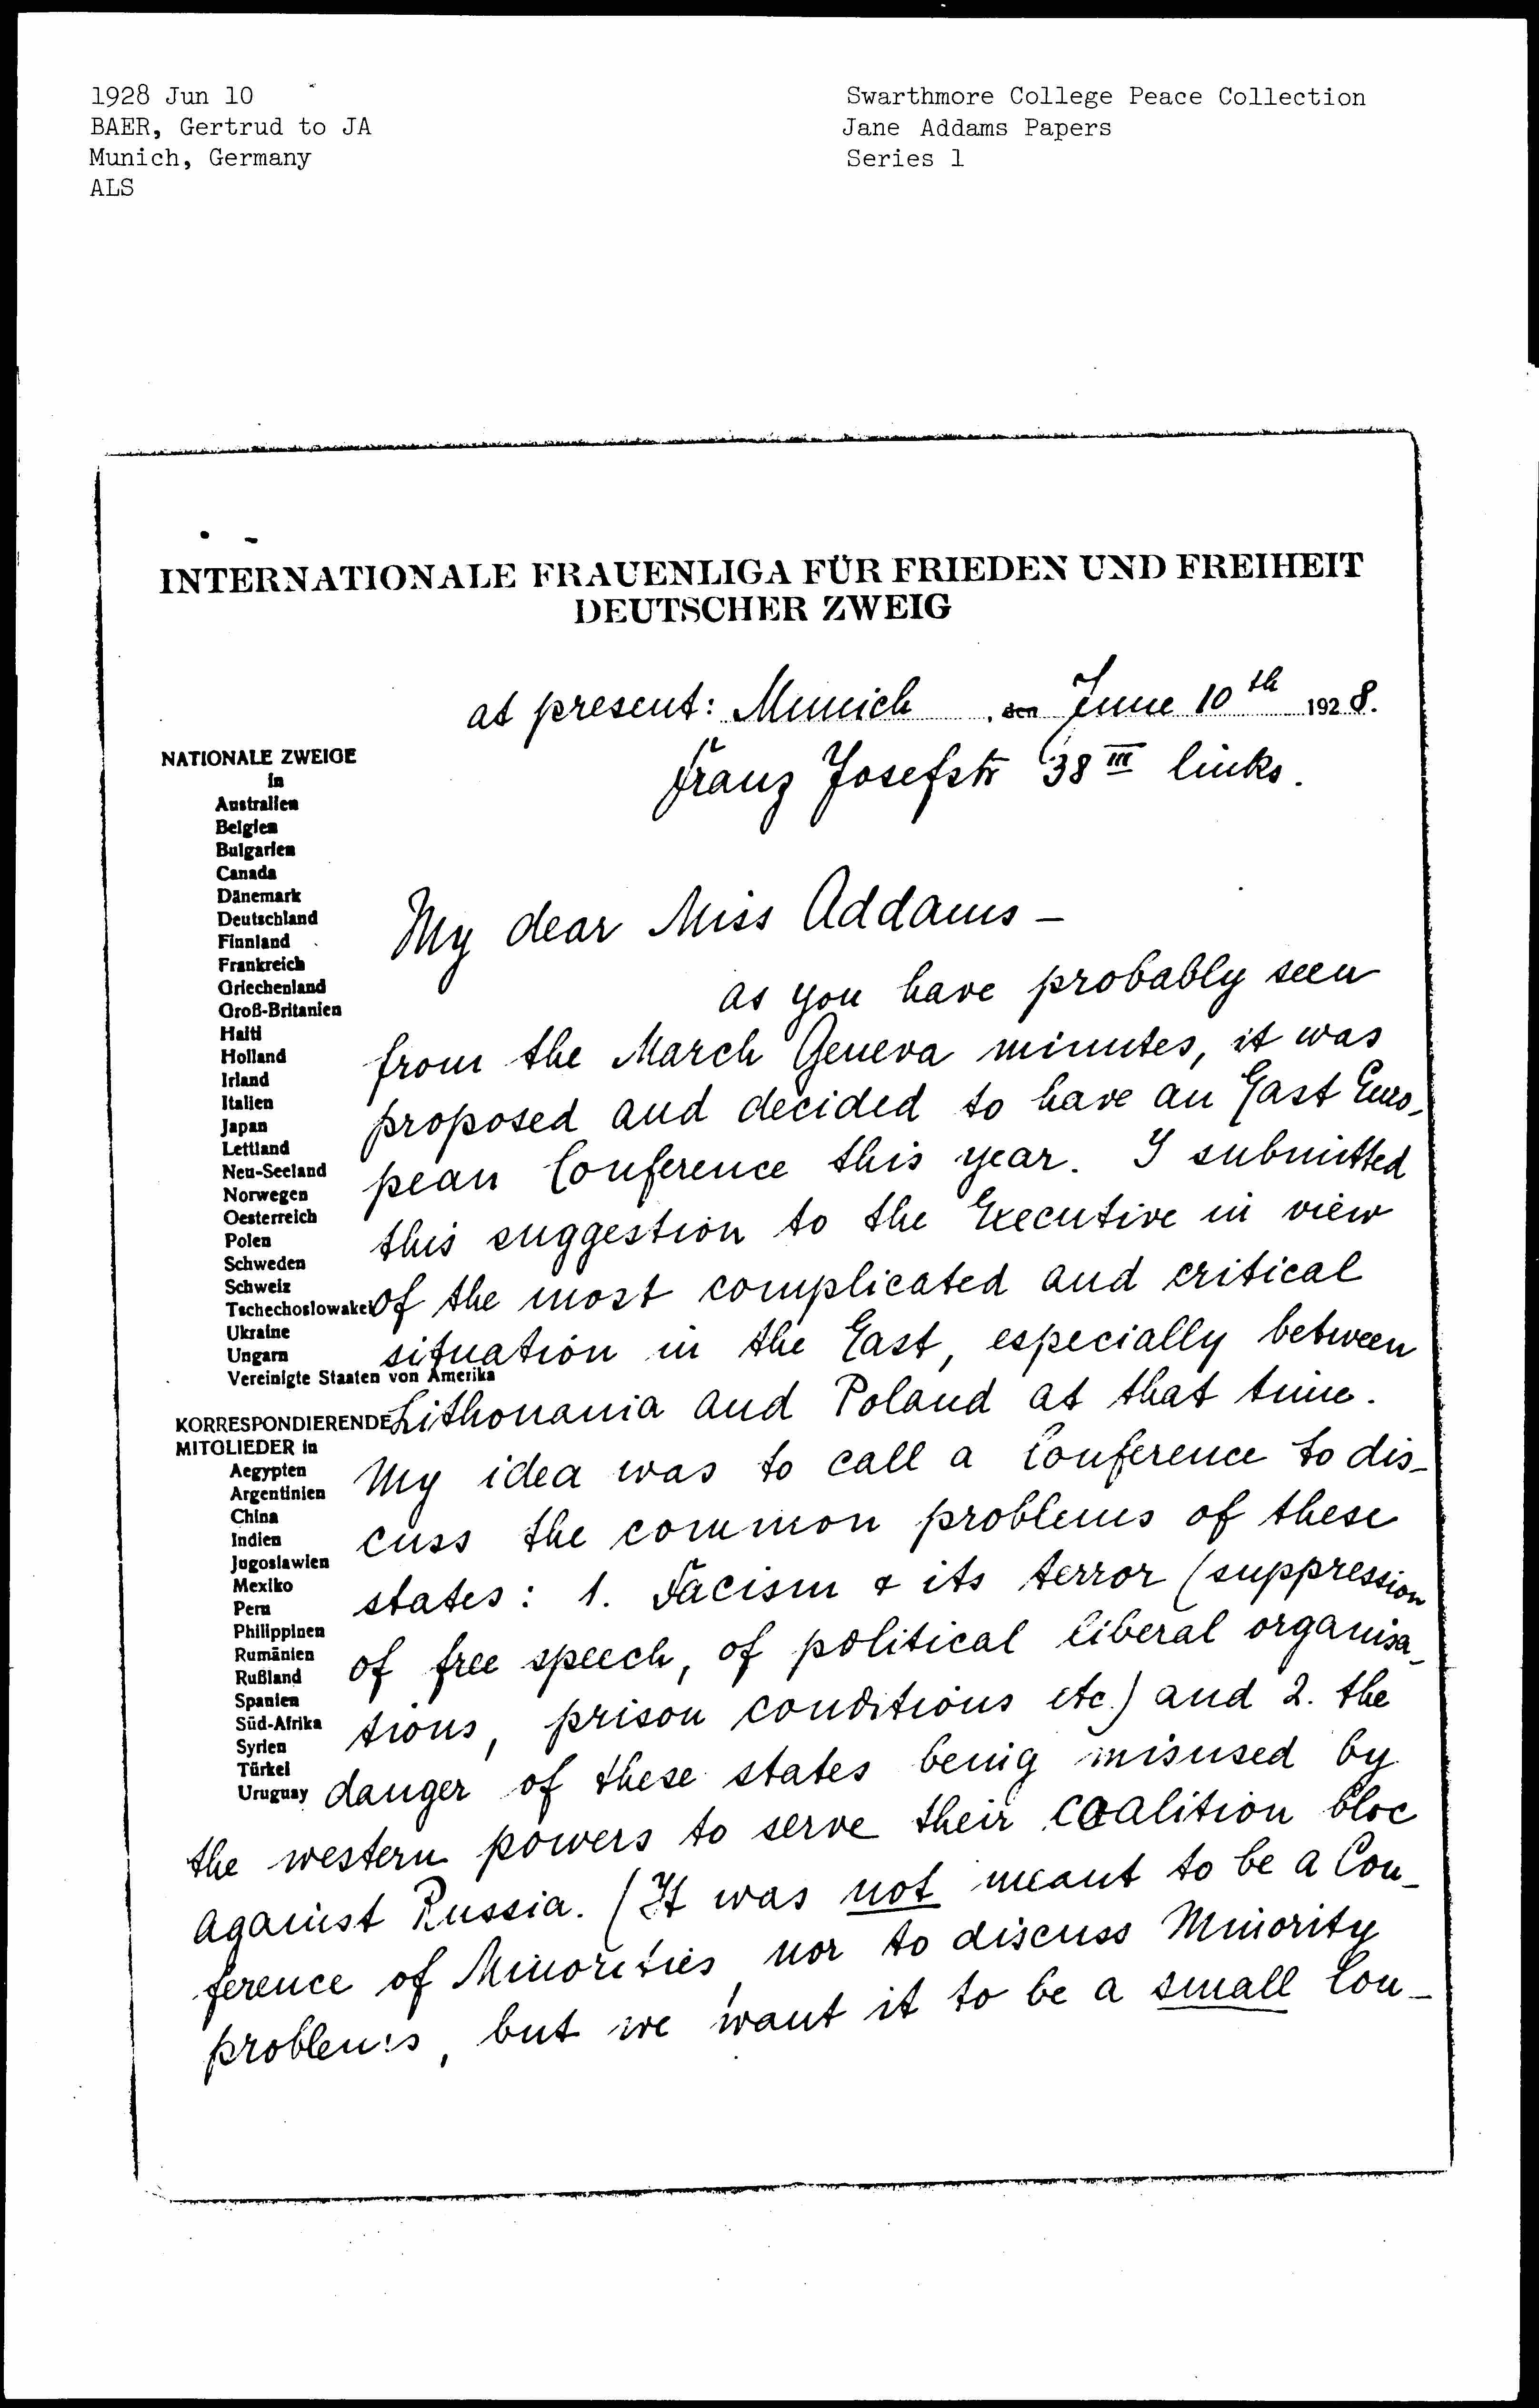 1928 Jun 10
BAER, Gertrud to JA
Munich, Germany
ALS
Swarthmore College Peace Collection
Jane Addams Papers
Series 1
INTERNATIONALE FRAUENLIGA FÜR FRIEDEN UND FREIHEIT
DEUTSCHER ZWEIG
at present: Munich, den June 10th 1928.
Franz Josefstr 38 III links.
NATIONALE ZWEIGE
in
Australien
Belgien
Bulgarien
Canada
Dänemark
Deutschland
Finnland
Frankreich
Griechenland
Groß-Britanien
Haiti
Holland
Irland
Italien
Japan
Lettland
Neu-Seeland
Norwegen
Oesterreich
Polen
Schweden
Schweiz
Tschechoslowakei
Ukraine
Ungarn
Vereinigte Staaten von Amerika
KORRESPONDIERENDE
MITGLIEDER in
Aegypten
Argentinien
China
Indien
Jugoslawien
Mexiko
Peru
Philippinen
Rumänien
Rußland
Spanien
Süd-Afrika
Syrien
Türkei
Uruguay
My dear Miss Addams -
as you have probably seen
from the March Geneva minutes, it was
proposed and decided to have an East Euro-
pean Conference this year. I submitted
this suggestion to the Executive in view
of the most complicated and critical
situation in the East, especially between
Lithouania and Poland at that time.
My idea was to call a Conference to dis-
cuss the common problems of these
states: 1. Facism & its terror (suppression
of free speech, of political liberal organisa-
tions, prison conditions etc.) and 2. the
danger of these states being misused by
the western powers to serve their coalition bloc
against Russia. (It was not meant to be a Con-
ference of Minorities, nor to discuss Minority
problems, but we want it to be a small Con-